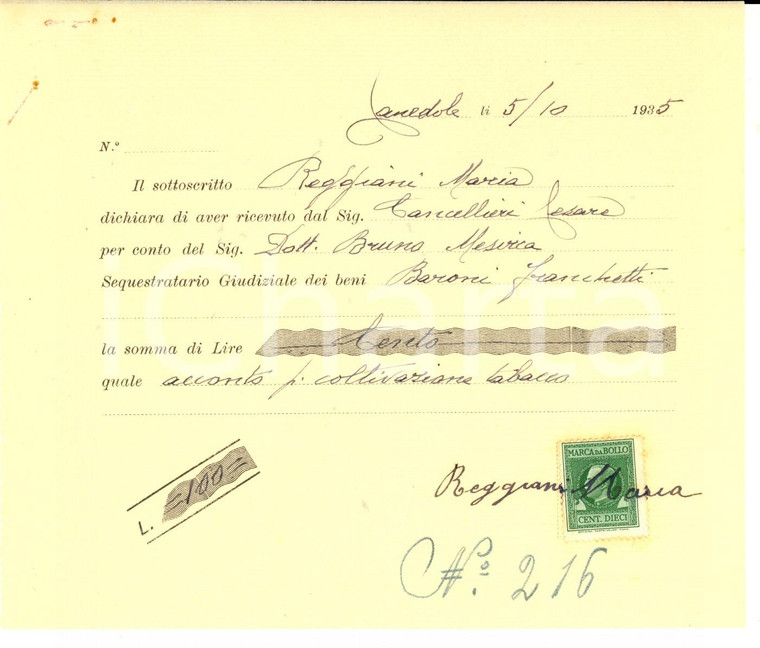 Canedole li 5/10 1935
N.º
Il sottoscritto Reggiani Maria
dichiara di aver ricevuto dal Sig. Cancellieri Cesare
per conto del Sig. Dott. Bruno Mesirca
Sequestratario Giudiziale dei beni Baroni Franchetti
la somma di Lire Cento
quale acconto p. coltivazione tabacco
L. =100=
MARCA DA BOLLO
Reggiani Maria
CENT. DIECI
Nº 216